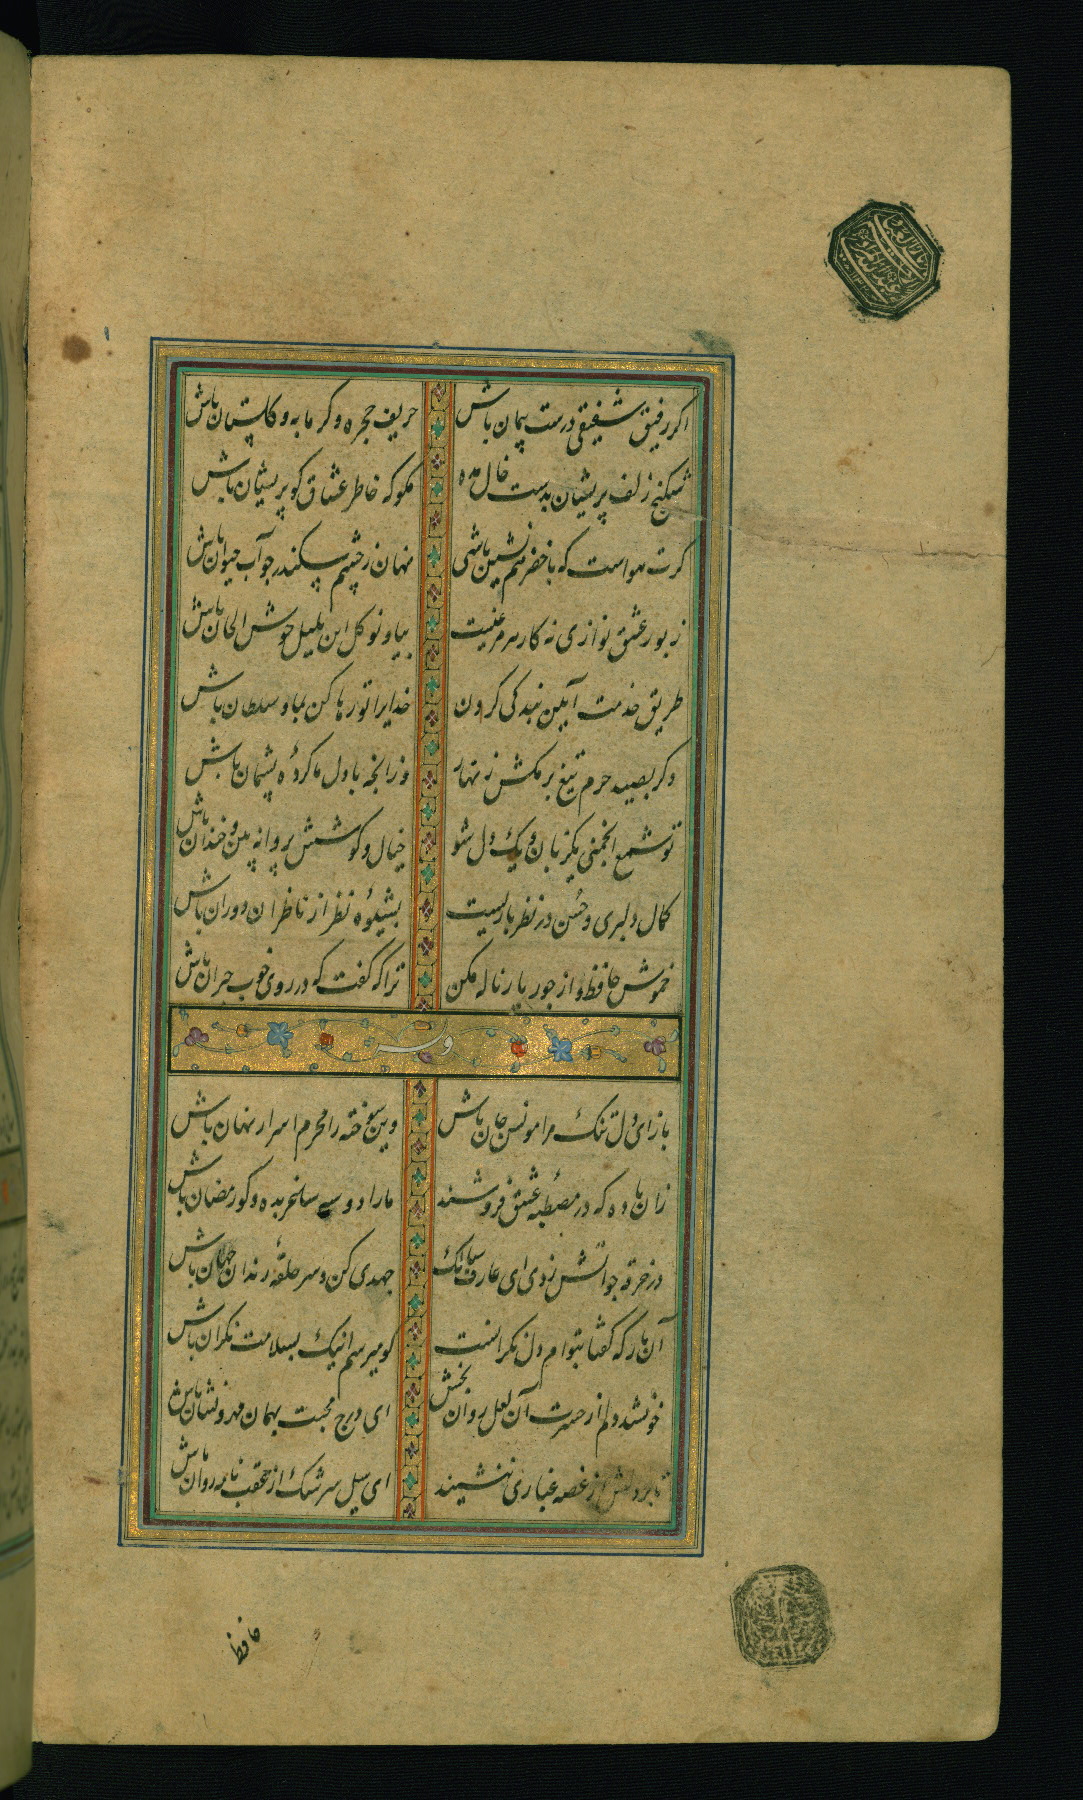 اکر رفیق شفیقی درست پیمان باش حریف حجره و کرمابه و کلستان باش
شکنج زلف پریشان بدست خال مده مکو که خاطر عشاق کو پریشان باش
کرت هواست که با خضر همنشین باشی نهان ز چشم سکندر چو آب حیوان باش
زبور عشق نوازی نه کار هر مرغیست بیا و نو کل این بلبل خوش الحان باش
طریق خدمت و آیین بندکی کردن خدایرا تو رها کن بما و سلطان باش
دکر بصید حرم تیغ برمکش زنهار وز انچه با دل ما کردهٔ پشیمان باش
تو شمع انجمنی یکزبان و یک دل شو خیال و کوشش پروانه بین و خندان باش
کمال دلبری و حسن در نظر بازیست بشیوهٔ نظر از ناظران دوران باش
خموش حافظ و از جور یار ناله مکن ترا که کفت که در روی خوب حیران باش
باز ای و دل تنک مرا مونس جان باش وین سوخته را محرم اسرار نهان باش
زان باده که در مصطبهٔ عشق فروشند ما را دو سه ساغر بده و کو رمضان باش
در خرقه چو اتش زدی ای عارف سالک جهدی کن و سر حلقهٔ رندان جهان باش
آن یار که کفتا بتوام دل نکرانست کو میرسم اینک بسلامت نکران باش
خون شد دلم از حسرت آن لعل روان بخش ای درج محبت بهمان مهر و نشان باش
تا بر دلش از غصه غباری ننشیند ای سیل سرشک از عقب نامه روان باش
حافظ